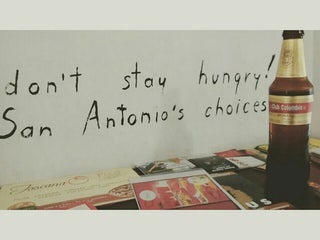 don't stay hungry!
San Antonio's choices
Club Colombia
Toscana